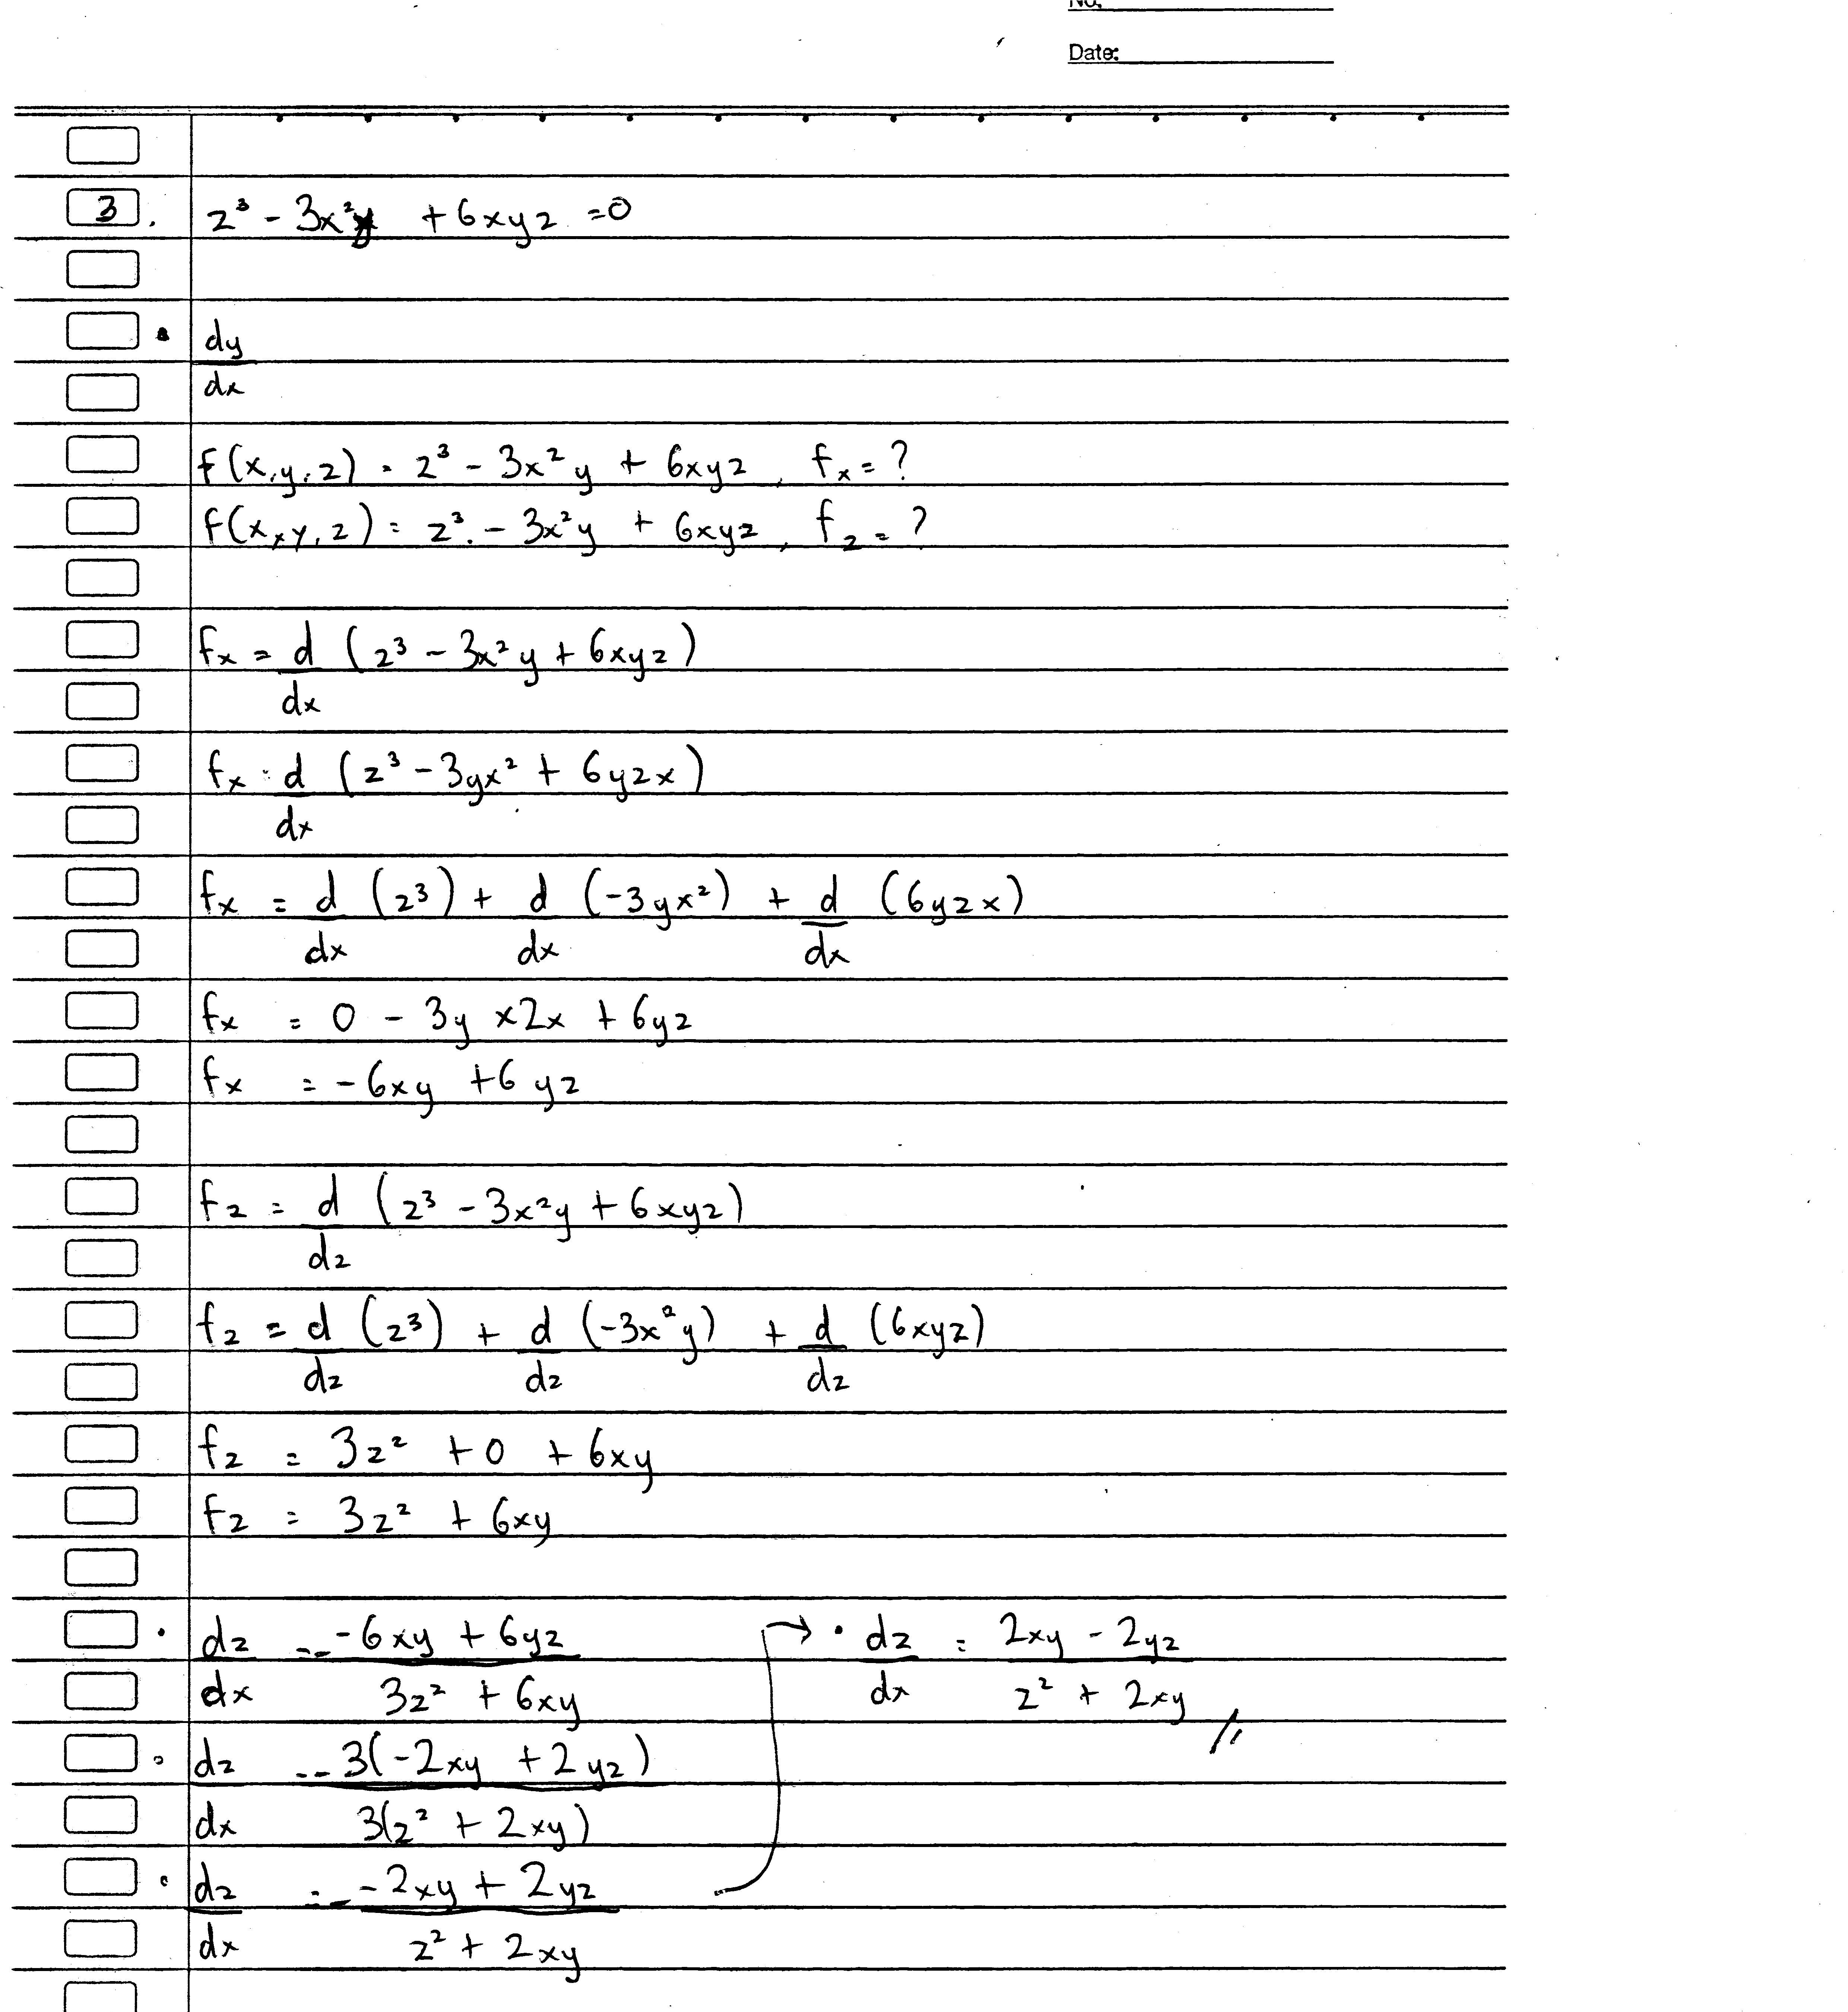 No.
Date:
3. z³ - 3x²y + 6xyz = 0
• dy/dx
F(x,y,z) = z³ - 3x²y + 6xyz, fx = ?
F(x,y,z) = z³ - 3x²y + 6xyz, fz = ?
fx = d/dx (z³ - 3x²y + 6xyz)
fx = d/dx (z³ - 3yx² + 6yzx)
fx = d/dx (z³) + d/dx (-3yx²) + d/dx (6yzx)
fx = 0 - 3y x 2x + 6yz
fx = -6xy + 6yz
fz = d/dz (z³ - 3x²y + 6xyz)
fz = d/dz (z³) + d/dz (-3x²y) + d/dz (6xyz)
fz = 3z² + 0 + 6xy
fz = 3z² + 6xy
• dz/dx = - (-6xy + 6yz)/(3z² + 6xy)
• dz/dx = - 3(-2xy + 2yz)/3(z² + 2xy)
• dz/dx = - (-2xy + 2yz)/(z² + 2xy)
→ • dz/dx = (2xy - 2yz)/(z² + 2xy) //